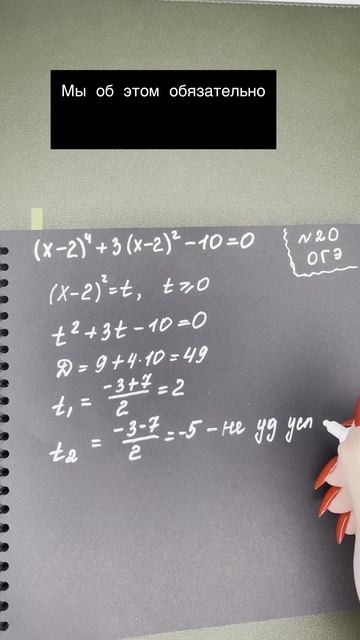 Мы об этом обязательно
(x-2)⁴+3(x-2)²-10=0
№20
ОГЭ
(x-2)²=t, t⩾0
t²+3t-10=0
D=9+4·10=49
t₁ = (-3+7)/2 = 2
t₂ = (-3-7)/2 = -5 - не уд усл